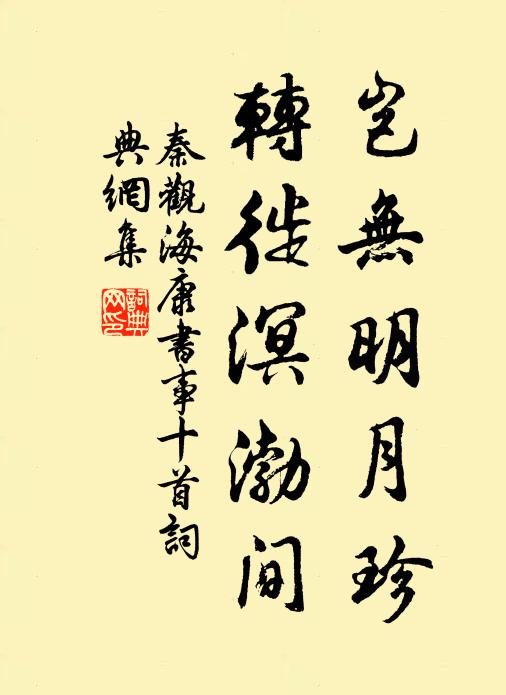 豈無明月珍
轉徙溟渤間
秦觀海康書事十首詞
典網集
詞典
网印